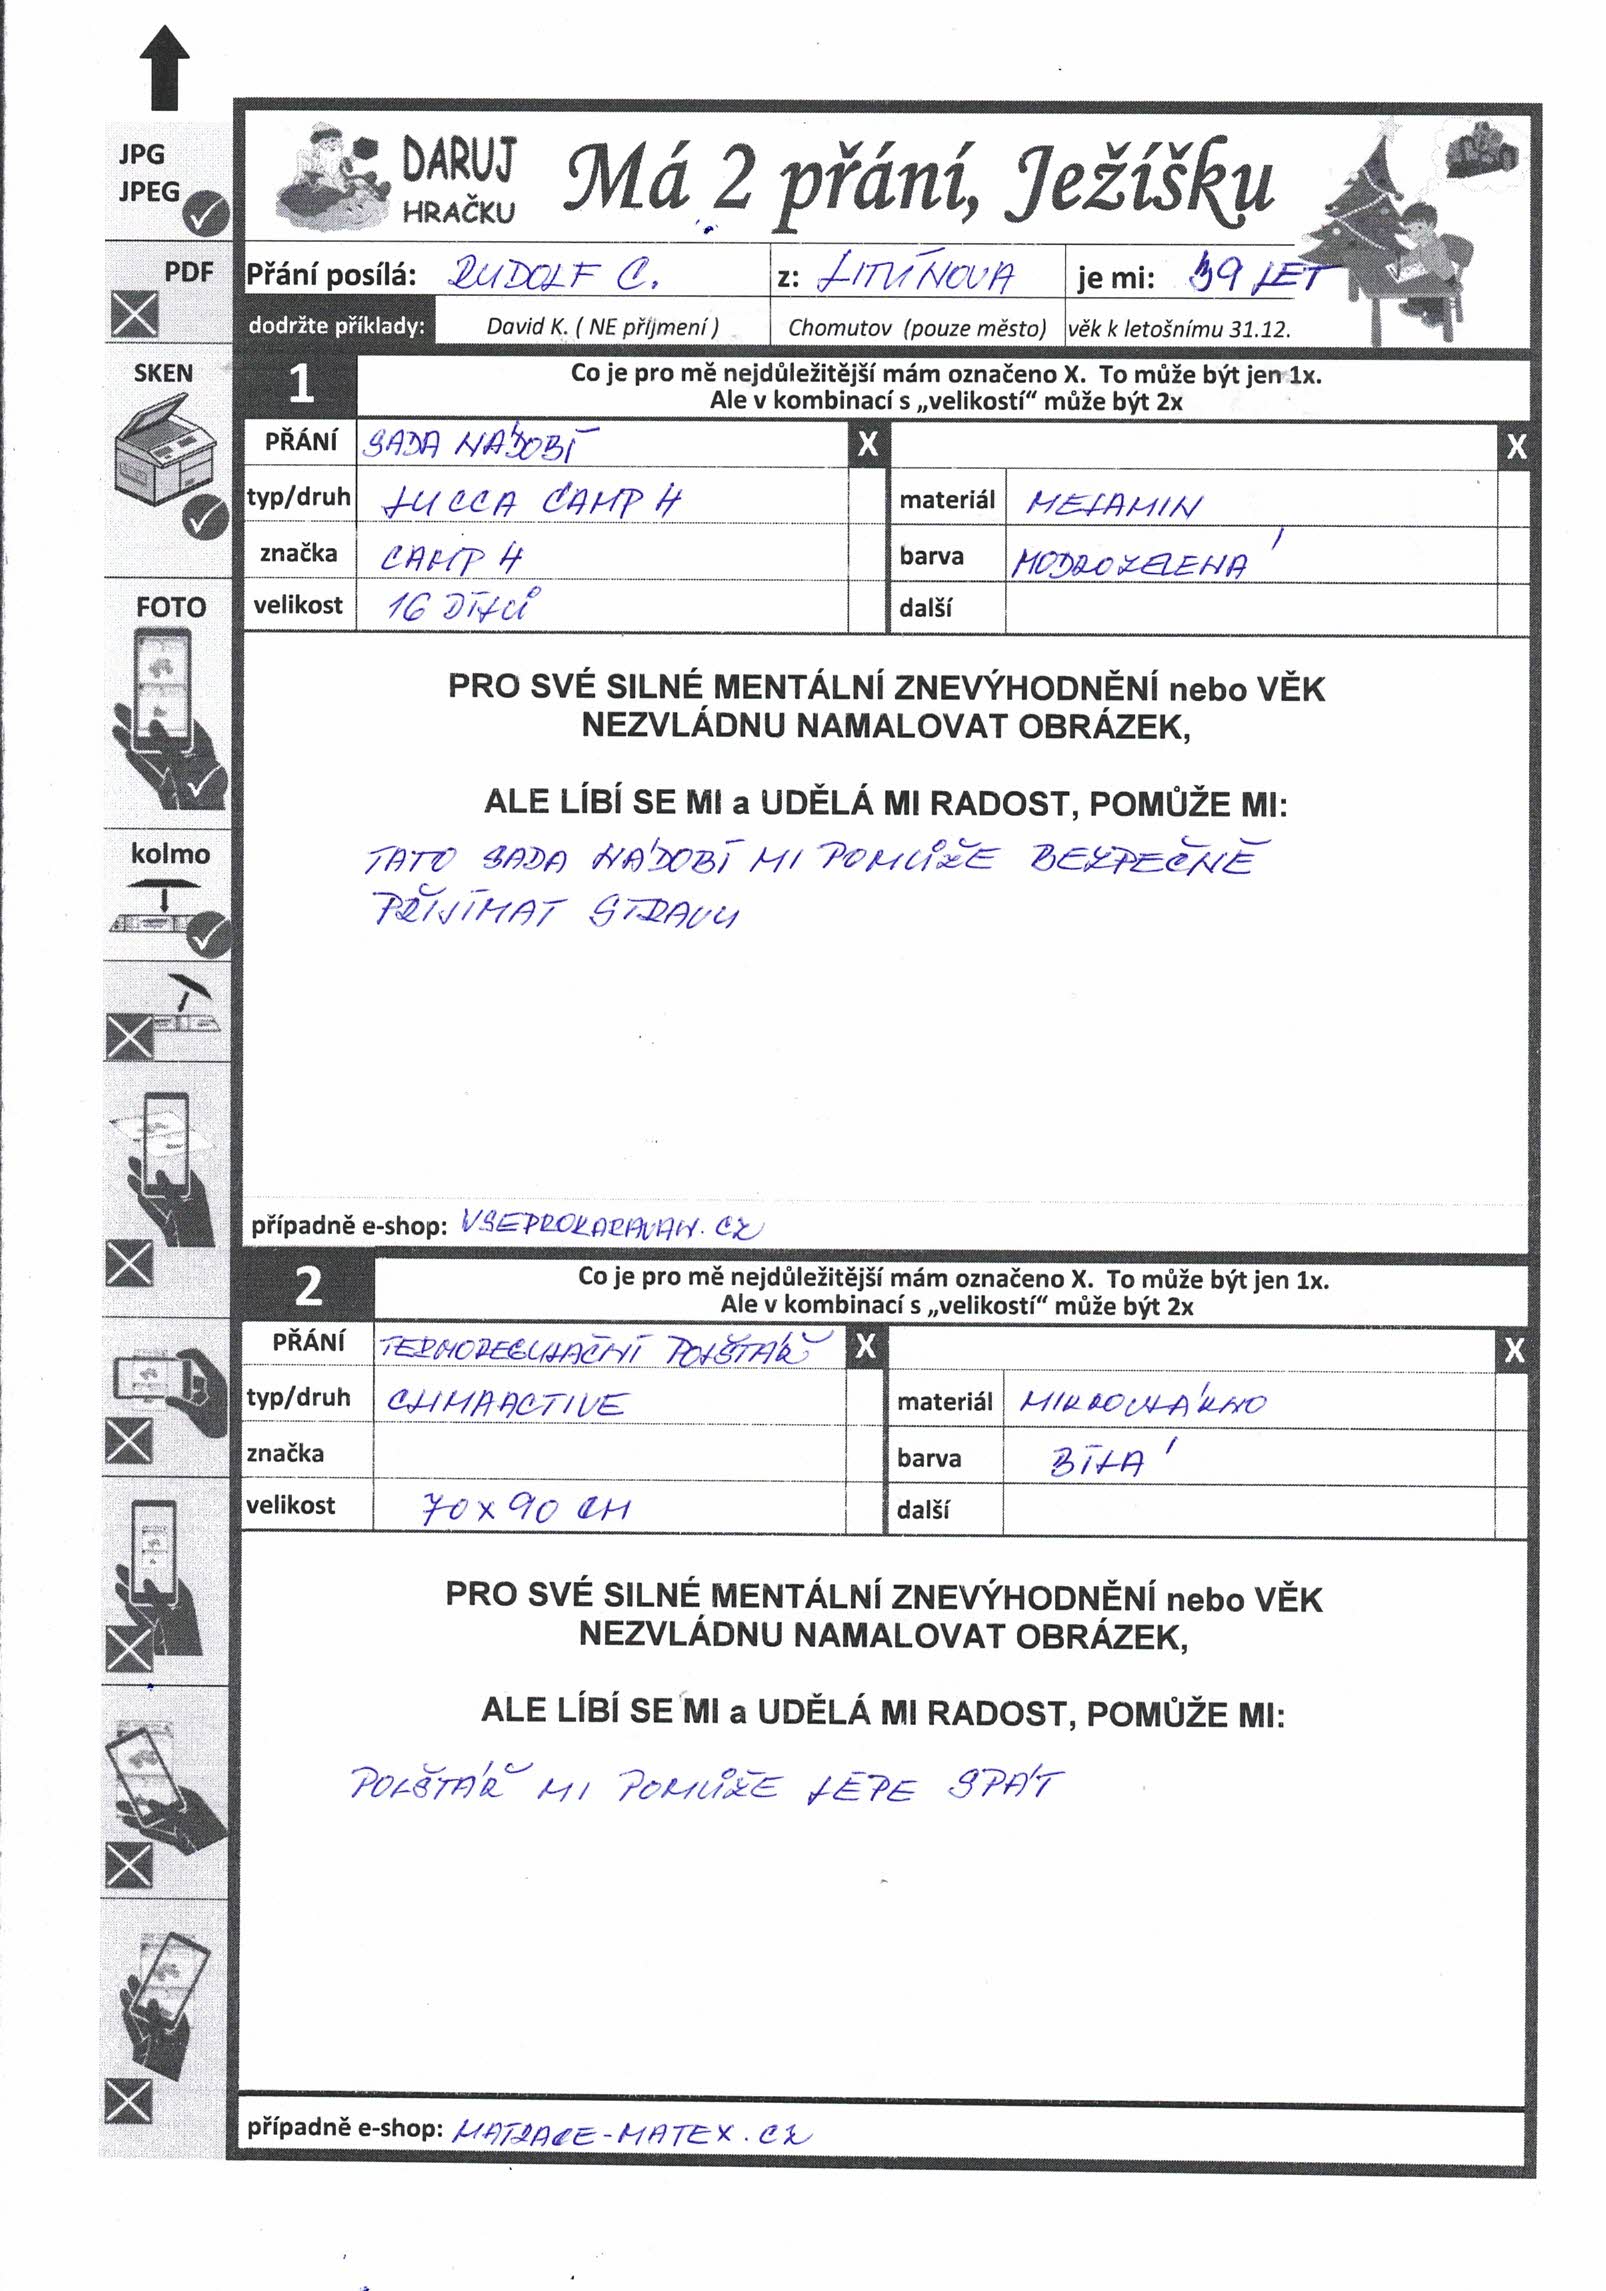 JPG
JPEG
PDF
SKEN
FOTO
kolmo
DARUJ
HRAČKU
Má 2 přání, Ježíšku
Přání posílá: RUDOLF C. z: LITVÍNOVA je mi: 39 LET
dodržte příklady: David K. ( NE příjmení ) Chomutov (pouze město) věk k letošnímu 31.12.
1 Co je pro mě nejdůležitější mám označeno X. To může být jen 1x.
Ale v kombinací s „velikostí“ může být 2x
PŘÁNÍ SADA NÁDOBÍ X X
typ/druh LUCCA CAMP 4 materiál MELAMIN
značka CAMP 4 barva MODROZELENÁ
velikost 16 DÍLŮ další
PRO SVÉ SILNÉ MENTÁLNÍ ZNEVÝHODNĚNÍ nebo VĚK
NEZVLÁDNU NAMALOVAT OBRÁZEK,
ALE LÍBÍ SE MI a UDĚLÁ MI RADOST, POMŮŽE MI:
TATO SADA NÁDOBÍ MI POMŮŽE BEZPEČNĚ
PŘIJÍMAT STRAVU
případně e-shop: VSEPROKARAVAN.CZ
2 Co je pro mě nejdůležitější mám označeno X. To může být jen 1x.
Ale v kombinací s „velikostí“ může být 2x
PŘÁNÍ TERMOREGULAČNÍ POLŠTÁŘ X X
typ/druh CLIMAACTIVE materiál MIKROVLÁKNO
značka barva BÍLÁ
velikost 70 x 90 CM další
PRO SVÉ SILNÉ MENTÁLNÍ ZNEVÝHODNĚNÍ nebo VĚK
NEZVLÁDNU NAMALOVAT OBRÁZEK,
ALE LÍBÍ SE MI a UDĚLÁ MI RADOST, POMŮŽE MI:
POLŠTÁŘ MI POMŮŽE LÉPE SPÁT
případně e-shop: MATRACE-MATEX.CZ